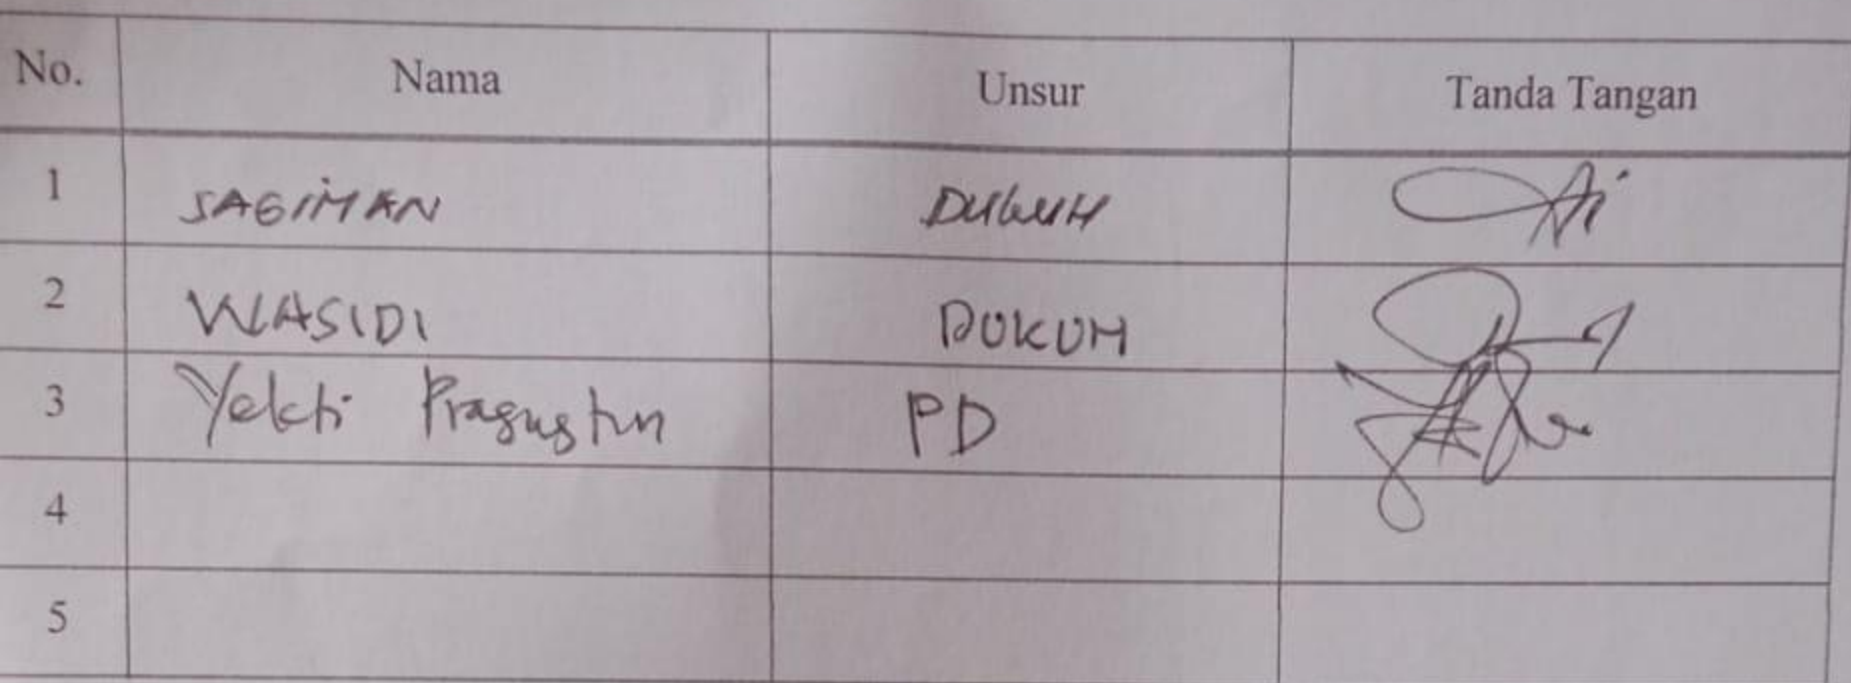 No. Nama Unsur Tanda Tangan
1 SAGIMAN DUKUH
2 WASIDI DUKUH
3 Yekti Pragustin PD
4
5